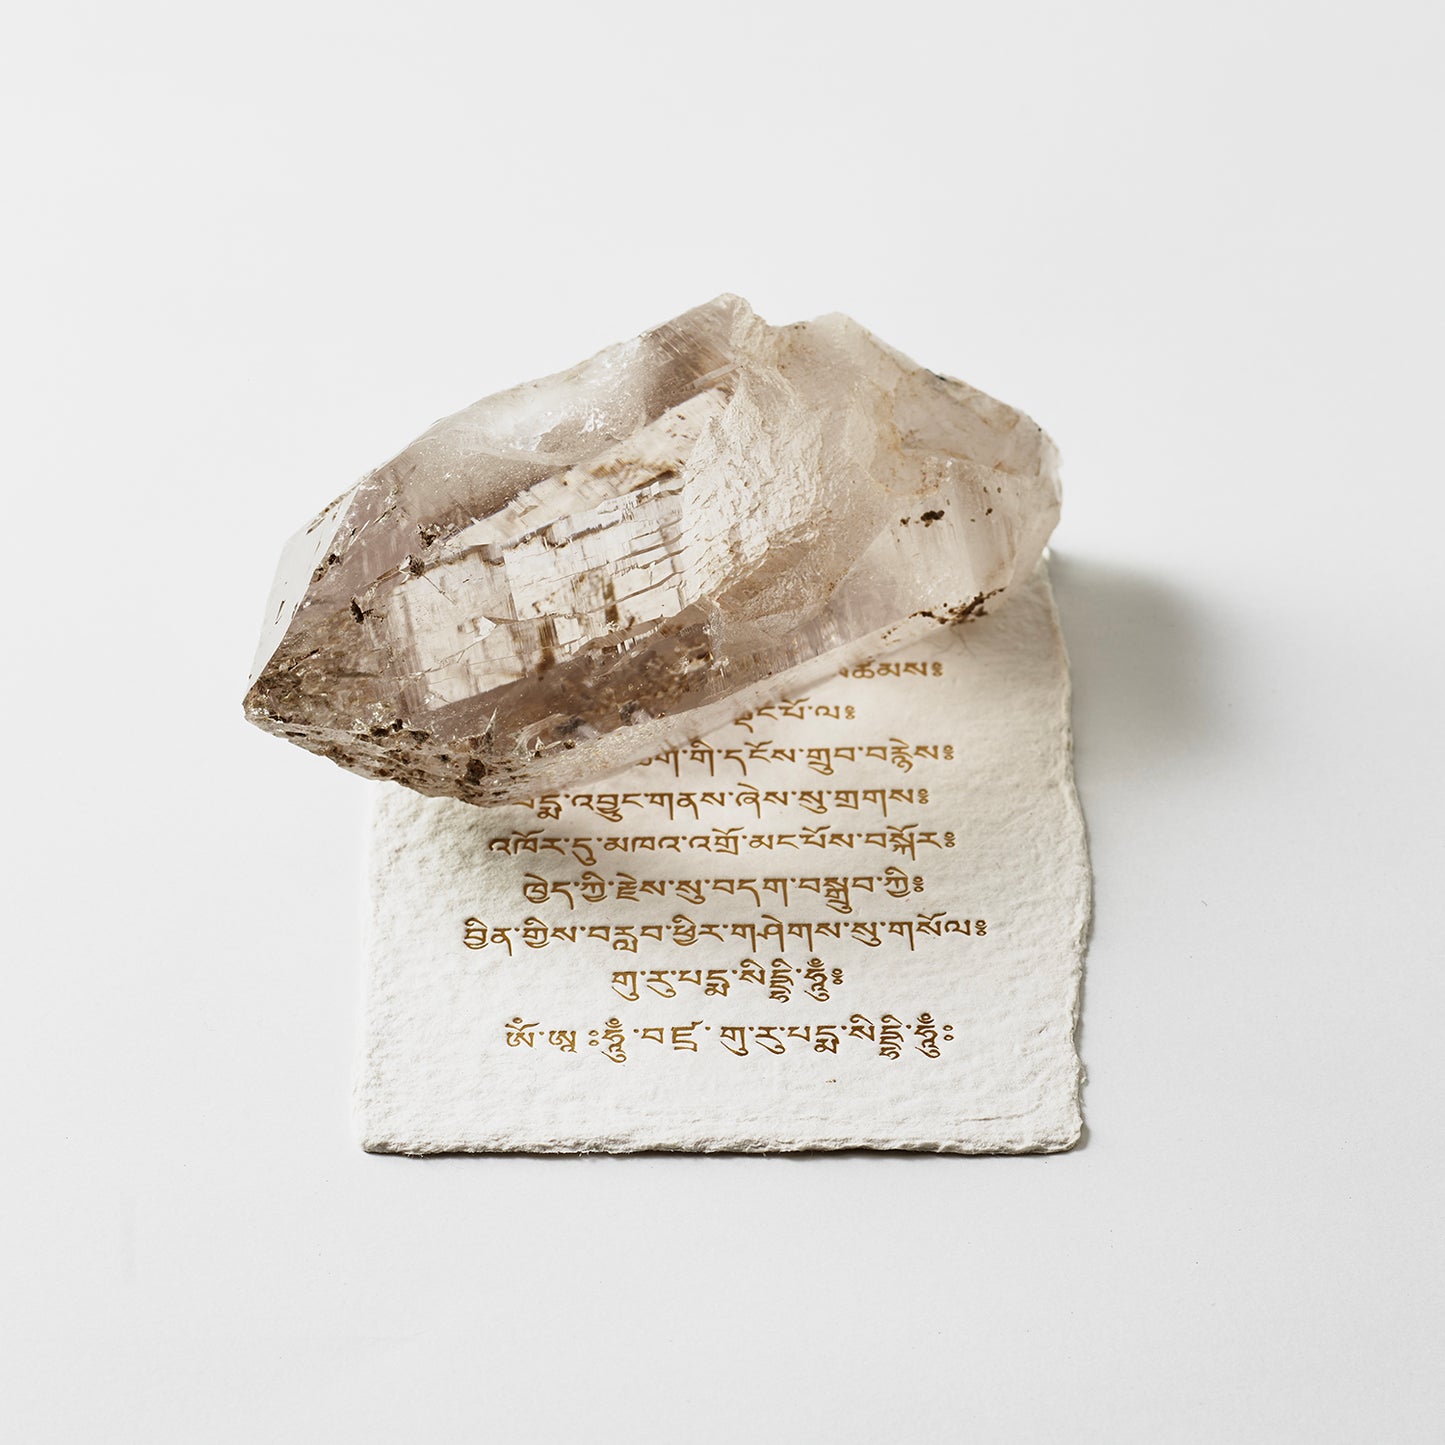 མཚམས༔
པོ་ལ༔
གི་དངོས་གྲུབ་བརྙེས༔
པདྨ་འབྱུང་གནས་ཞེས་སུ་གྲགས༔
འཁོར་དུ་མཁའ་འགྲོ་མང་པོས་བསྐོར༔
ཁྱེད་ཀྱི་རྗེས་སུ་བདག་བསྒྲུབ་ཀྱི༔
བྱིན་གྱིས་བརླབ་ཕྱིར་གཤེགས་སུ་གསོལ༔
གུ་རུ་པདྨ་སིདྡྷི་ཧཱུྃ༔
ཨོཾ་ཨཱ ཿཧཱུྃ་བཛྲ་ གུ་རུ་པདྨ་སིདྡྷི་ཧཱུྃ༔